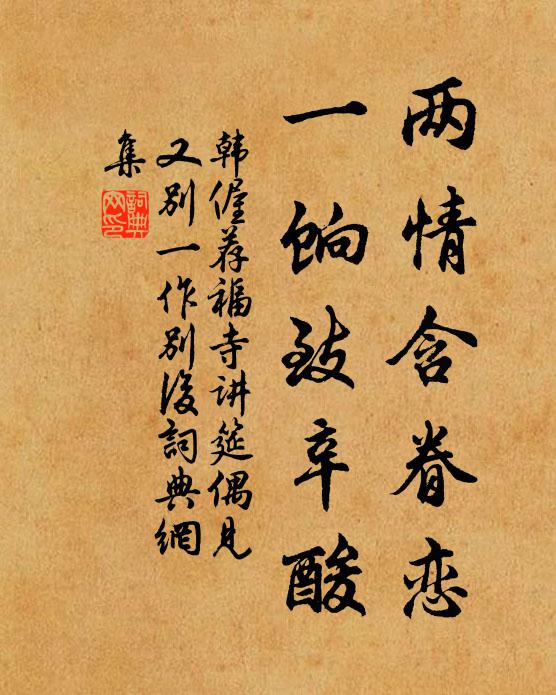 两情含眷恋
一饷致辛酸
韩偓荐福寺讲筵偶见
又别一作别后词典網
集
詞典
网印